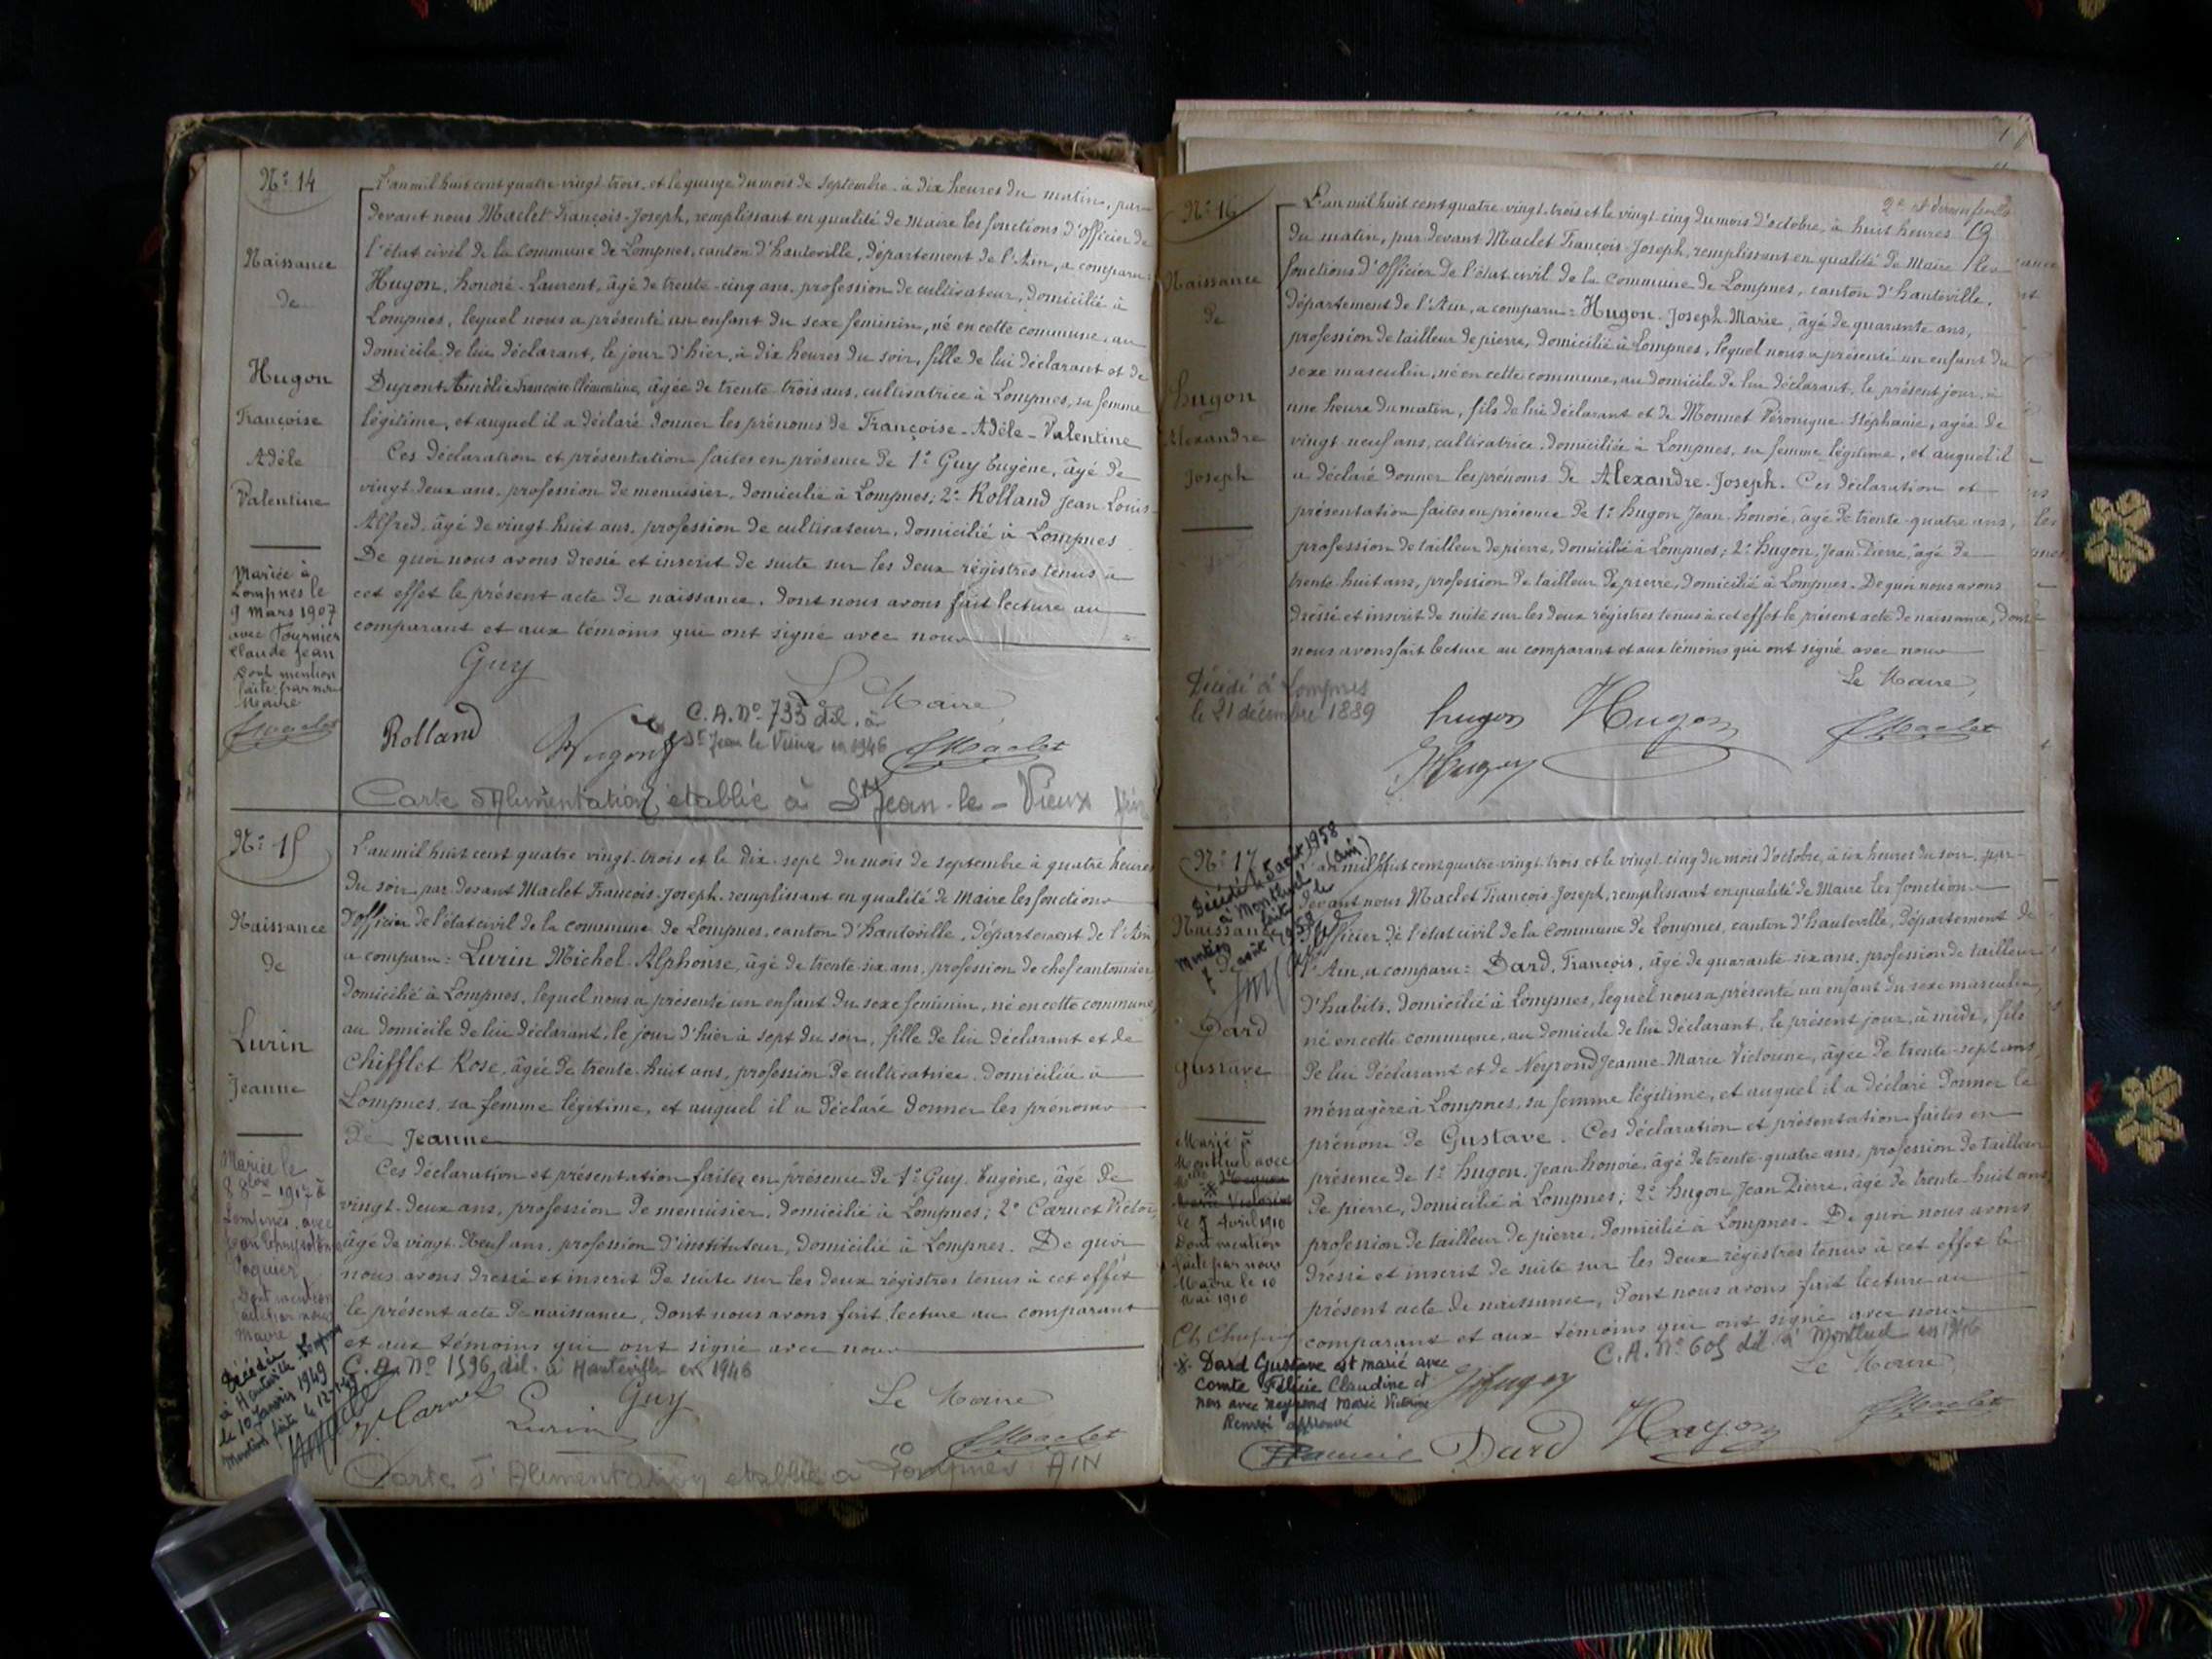 Nº 14
Naissance
de
Hugon
Françoise
Adèle
Valentine
Mariée à
Lompnes le
9 Mars 1907
avec Fournier
Claude Jean
Dont mention
faite par nous
Maire
L'an mil huit cent quatre-vingt-trois, et le quinze du mois de Septembre à dix heures du matin, par-
devant nous Maclet François-Joseph, remplissant en qualité de Maire les fonctions d'Officier de
l'état civil de la Commune de Lompnes, canton d'hauteville, département de l'Ain, a comparu:
Hugon, honoré-Laurent, âgé de trente-cinq ans, profession de cultivateur, domicilié à
Lompnes, lequel nous a présenté un enfant du sexe féminin, né en cette commune, au
domicile de lui déclarant, le jour d'hier, à dix heures du soir, fille de lui déclarant et de
Dupont Françoise Clémentine, âgée de trente trois ans, cultivatrice à Lompnes, sa femme
légitime, et auquel il a déclaré donner les prénoms de Françoise-Adèle-Valentine
Ces déclaration et présentation faites en présence de 1º Guy Eugène, âgé de
vingt-deux ans, profession de menuisier, domicilié à Lompnes; 2º Rolland Jean-Louis-
Alfred, âgé de vingt-huit ans, profession de cultivateur, domicilié à Lompnes
De quoi nous avons dressé et inscrit de suite sur les deux régistres tenus à
cet effet le présent acte de naissance, dont nous avons fait lecture au
comparant et aux témoins qui ont signé avec nous
Guy
Le Maire,
C.A. Nº 733 dél. à
St Jean le Vieux en 1946
Rolland
Hugon
Maclet
Carte d'Alimentation établie à St Jean-le-Vieux
Nº 15
Naissance
de
Lurin
Jeanne
Mariée le
8 8bre 1917 à
Lompnes avec
Dont mention
Maire
Décédée
à Hauteville-Lompnes
le 10 Janvier 1949
Mention faite le
L'an mil huit cent quatre vingt-trois et le dix-sept du mois de septembre à quatre heures
du soir par-devant Maclet François-Joseph, remplissant en qualité de Maire les fonctions
d'Officier de l'état civil de la commune de Lompnes, canton d'Hauteville, département de l'Ain
a comparu: Lurin Michel Alphonse, âgé de trente six ans, profession de chef cantonnier
domicilié à Lompnes, lequel nous a présenté un enfant du sexe féminin, né en cette commune,
au domicile de lui déclarant, le jour d'hier à sept du soir, fille de lui déclarant et de
Chifflet Rose, âgée de trente-huit ans, profession de cultivatrice domiciliée à
Lompnes, sa femme légitime, et auquel il a déclaré donner les prénoms
de Jeanne
Ces déclaration et présentation faites en présence de 1º Guy Eugène, âgé de
vingt-deux ans, profession de menuisier, domicilié à Lompnes; 2º Carnet Victor,
âgé de vingt-neuf ans, profession d'instituteur, domicilié à Lompnes. De quoi
nous avons dressé et inscrit de suite sur les deux régistres tenus à cet effet
le présent acte de naissance, dont nous avons fait lecture au comparant
et aux témoins qui ont signé avec nous
C.A. Nº 1596 dél. à Hauteville en 1946
Lurin
Guy
Le Maire
Maclet
Carte d'Alimentation établie à Lompnes AIN
Nº 16
Naissance
de
hugon
Alexandre
Joseph
Décédé à Lompnes
le 21 décembre 1889
2e et dernier feuillet
L'an mil huit cent quatre-vingt-trois et le vingt-cinq du mois d'octobre, à huit heures
du matin, par devant Maclet François-Joseph, remplissant en qualité de Maire les
fonctions d'Officier de l'état civil de la Commune de Lompnes, canton d'hauteville,
département de l'Ain, a comparu: Hugon Joseph Marie, âgé de quarante ans,
profession de tailleur de pierre, domicilié à Lompnes, lequel nous a présenté un enfant du
sexe masculin, né en cette commune, au domicile de lui déclarant, le présent jour, à
une heure du matin, fils de lui déclarant et de Monnet Véronique Stéphanie, agée de
vingt neuf ans, cultivatrice, domiciliée à Lompnes, sa femme légitime, et auquel il
a déclaré donner les prénoms de Alexandre-Joseph. Ces déclaration et
présentation faites en présence de 1º hugon Jean honoré, âgé de trente-quatre ans,
profession de tailleur de pierre, domicilié à Lompnes; 2º hugon Jean-Pierre, âgé de
trente-huit ans, profession de tailleur de pierre, domicilié à Lompnes. De quoi nous avons
dressé et inscrit de suite sur les deux régistres tenus à cet effet le présent acte de naissance, dont
nous avons fait lecture au comparant et aux témoins qui ont signé avec nous
Le Maire,
hugon
Hugon
Maclet
Hugon
Nº 17
Décédé le 5 août 1958
à Montluel (Ain)
Mention faite le
7 août 1958
Naissance
de
Dard
gustave
Marié à
Montluel avec
le 5 Avril 1910
Dont mention
faite par nous
Maire le 10
Mai 1910
L'an mil huit cent quatre-vingt-trois, et le vingt cinq du mois d'octobre, à six heures du soir, par-
devant nous Maclet François Joseph, remplissant en qualité de Maire les fonctions
d'Officier de l'état civil de la Commune de Lompnes, canton d'hauteville, département de
l'Ain, a comparu: Dard, François, âgé de quarante-six ans, profession de tailleur
d'habits, domicilié à Lompnes, lequel nous a présenté un enfant du sexe masculin,
né en cette commune, au domicile de lui déclarant, le présent jour, à midi, fils
de lui déclarant et de Neyrond Jeanne Marie Victorine, âgée de trente-sept ans
ménagère à Lompnes, sa femme légitime, et auquel il a déclaré donner le
prénom de Gustave. Ces déclaration et présentation faites en
présence de 1º hugon, Jean-honoré, âgé de trente-quatre ans, profession de tailleur
de pierre, domicilié à Lompnes; 2º hugon Jean Pierre, âgé de trente-huit ans,
profession de tailleur de pierre, domicilié à Lompnes. De quoi nous avons
dressé et inscrit de suite sur les deux régistres tenus à cet effet le
présent acte de naissance, dont nous avons fait lecture au
comparant et aux témoins qui ont signé avec nous
C.A. Nº 605 dél à Montluel en 1946
Le Maire
X Dard Gustave est marié avec
Comte Félicie Claudine et
non avec Neyrond Marie Victorine
Renvoi approuvé
Hugon
Dard
Hugon
Maclet